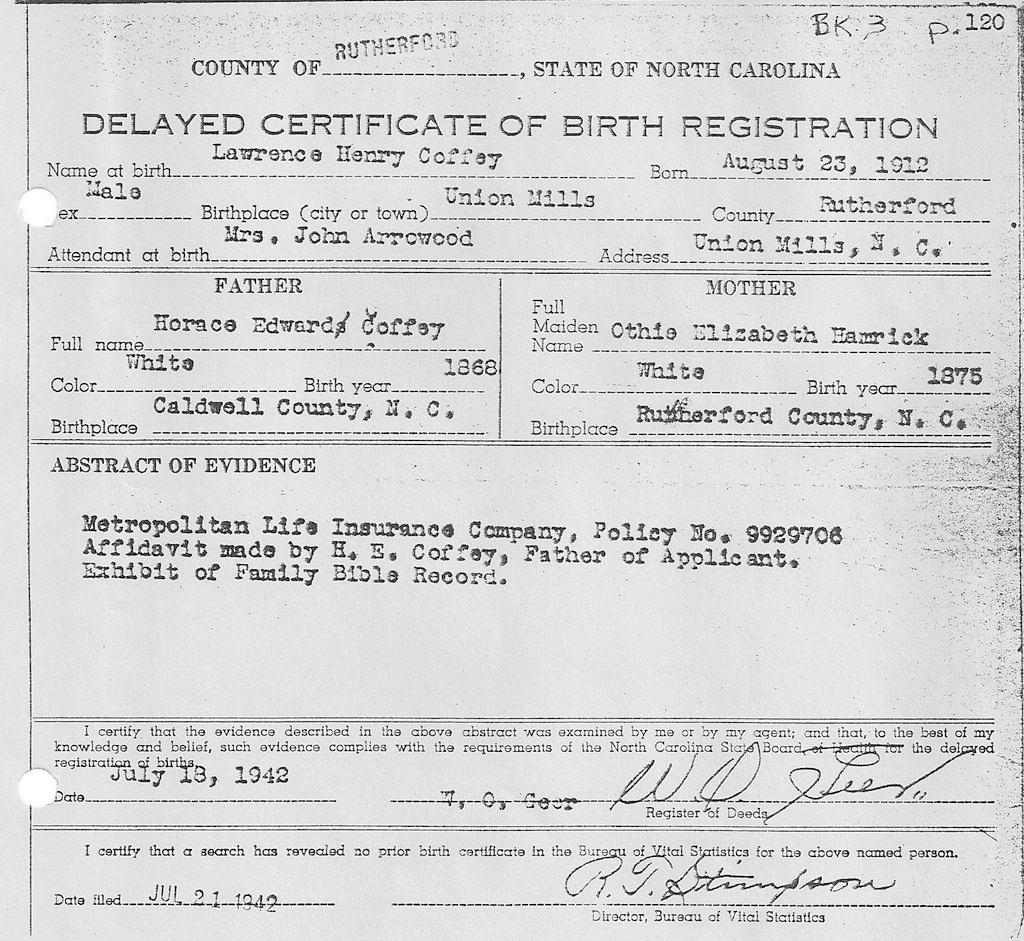 BK 3 p. 120
COUNTY OF RUTHERFORD, STATE OF NORTH CAROLINA
DELAYED CERTIFICATE OF BIRTH REGISTRATION
Name at birth Lawrence Henry Coffey Born August 23, 1912
ex Male Birthplace (city or town) Union Mills County Rutherford
Attendant at birth Mrs. John Arrowood Address Union Mills, N. C.
FATHER MOTHER
Full name Horace Edward Coffey
Full Maiden Name Othie Elizabeth Hamrick
Color White Birth year 1868 Color White Birth year 1875
Birthplace Caldwell County, N. C. Birthplace Rutherford County, N. C.
ABSTRACT OF EVIDENCE
Metropolitan Life Insurance Company, Policy No. 9929706
Affidavit made by H. E. Coffey, Father of Applicant.
Exhibit of Family Bible Record.
I certify that the evidence described in the above abstract was examined by me or by my agent; and that, to the best of my
knowledge and belief, such evidence complies with the requirements of the North Carolina State Board of Health for the delayed
registration of births.
Date July 18, 1942 W. O. Geer W O Geer
Register of Deeds
I certify that a search has revealed no prior birth certificate in the Bureau of Vital Statistics for the above named person.
Date filed JUL 21 1942 R. T. Stimpson
Director, Bureau of Vital Statistics